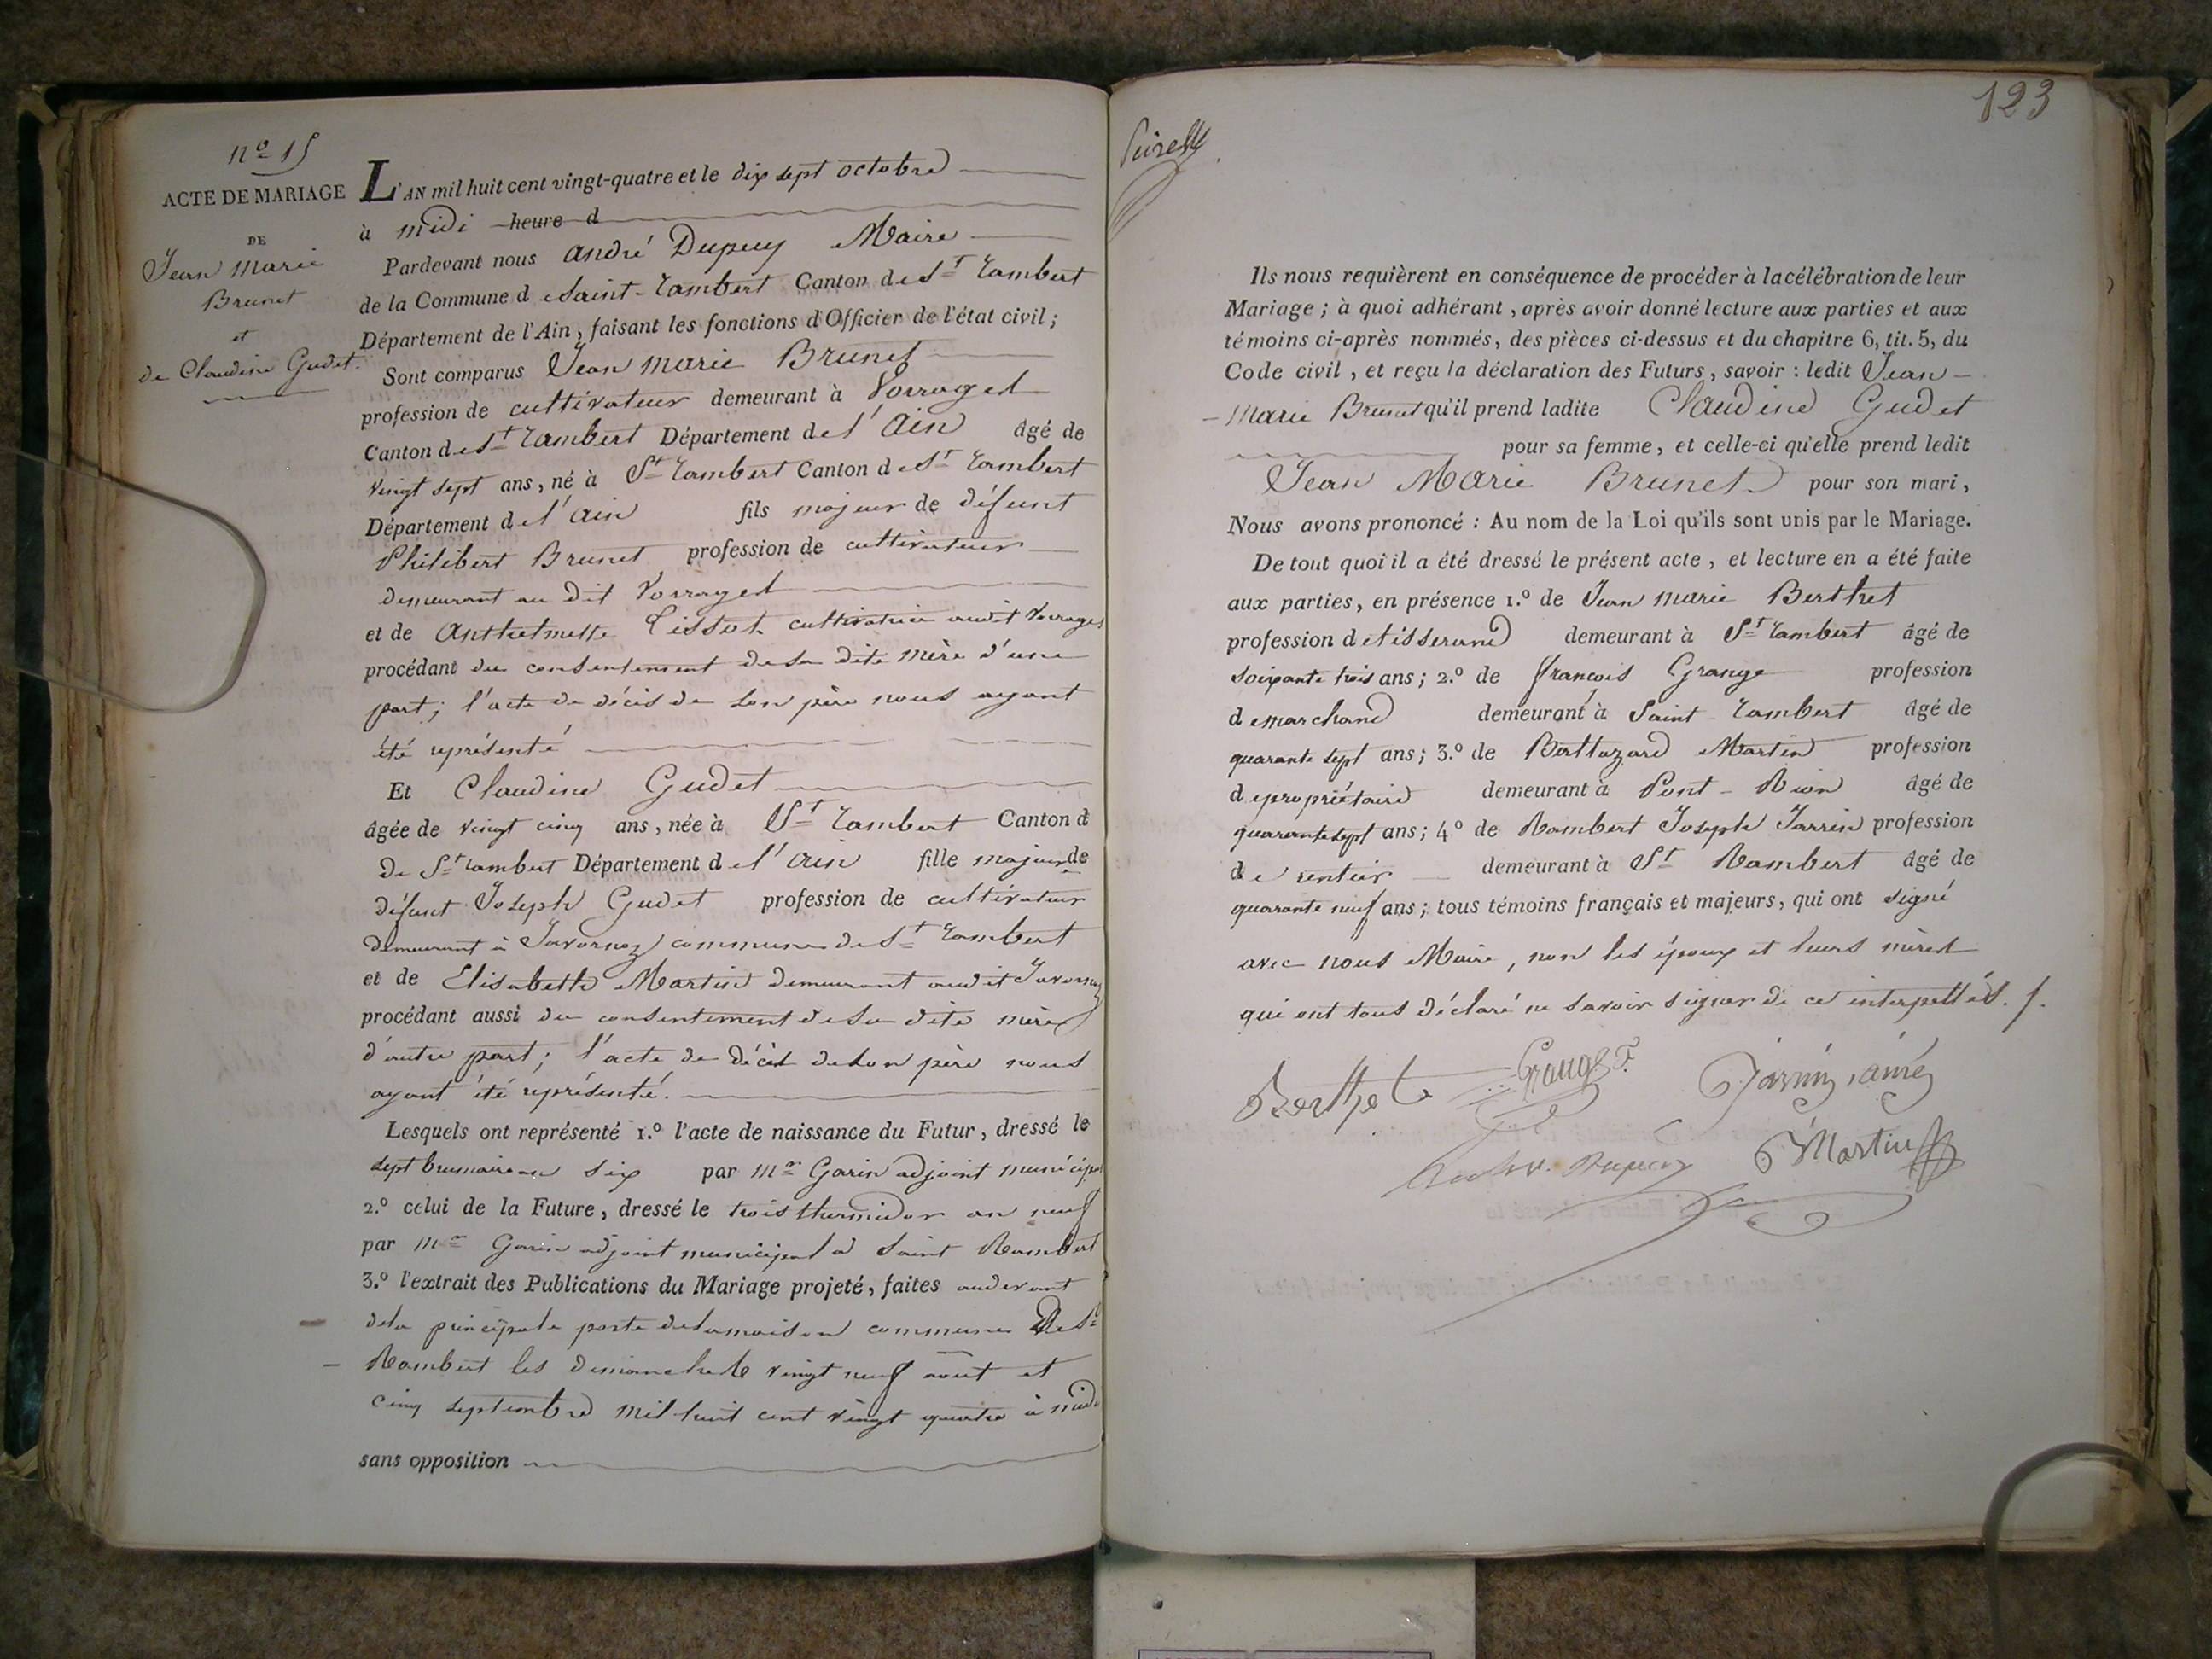 nº 15
ACTE DE MARIAGE
DE
Jean Marie
Brunet
et
de Claudine Gudet.
L'AN mil huit cent vingt-quatre et le dix sept octobre
à midi heure d
Pardevant nous André Dupuy Maire
de la Commune d e Saint-Rambert Canton de St Rambert
Département de l'Ain, faisant les fonctions d'Officier de l'état civil;
Sont comparus Jean Marie Brunet
profession de cultivateur demeurant à Vorraget
Canton de St Rambert Département de l'Ain âgé de
vingt sept ans, né à St Rambert Canton de St Rambert
Département de l'Ain fils majeur de défunt
Philibert Brunet profession de cultivateur
demeurant au dit Vorraget
et de Anthelmette Tissot cultivatrice audit Vorraget
procédant du consentement de sa dite mère d'une
part; l'acte de décès de son père nous ayant
été représenté
Et Claudine Gudet
âgée de vingt cinq ans, née à St Rambert Canton d
de St Rambert Département de l'Ain fille majeure de
défunt Joseph Gudet profession de cultivateur
demeurant à Javornoz commune de St Rambert
et de Elisabeth Martin demeurant audit Javornoz
procédant aussi du consentement de sa dite mère
d'autre part; l'acte de décès de son père nous
ayant été représenté.
Lesquels ont représenté 1.º l'acte de naissance du Futur, dressé le
sept brumaire an six par Mr Garin adjoint municipal
2.º celui de la Future, dressé le trois thermidor an neuf
par Mr Garin adjoint municipal à Saint Rambert
3.º l'extrait des Publications du Mariage projeté, faites audevant
de la principale porte de la maison commune de St
Rambert les dimanche vingt neuf août et
cinq septembre mil huit cent vingt quatre à midi
sans opposition
123
Ils nous requièrent en conséquence de procéder à la célébration de leur
Mariage; à quoi adhérant, après avoir donné lecture aux parties et aux
témoins ci-après nommés, des pièces ci-dessus et du chapitre 6, tit. 5, du
Code civil, et reçu la déclaration des Futurs, savoir: ledit Jean-
-Marie Brunet qu'il prend ladite Claudine Gudet
pour sa femme, et celle-ci qu'elle prend ledit
Jean Marie Brunet pour son mari,
Nous avons prononcé: Au nom de la Loi qu'ils sont unis par le Mariage.
De tout quoi il a été dressé le présent acte, et lecture en a été faite
aux parties, en présence 1.º de Jean Marie Berthet
profession de tisserand demeurant à St Rambert âgé de
soixante trois ans; 2.º de françois Grange profession
de marchand demeurant à Saint Rambert âgé de
quarante sept ans; 3.º de Balthazard Martin profession
de propriétaire demeurant à Pont-Rion âgé de
quarante sept ans; 4º de Rambert Joseph Jarrin profession
de rentier demeurant à St Rambert âgé de
quarante neuf ans; tous témoins français et majeurs, qui ont signé
avec nous Maire, non les époux et leurs mères
qui ont tous déclaré ne savoir signer de ce interpellés.
Berthet Grange F. Jarrin, aîné
André Dupuy Martin